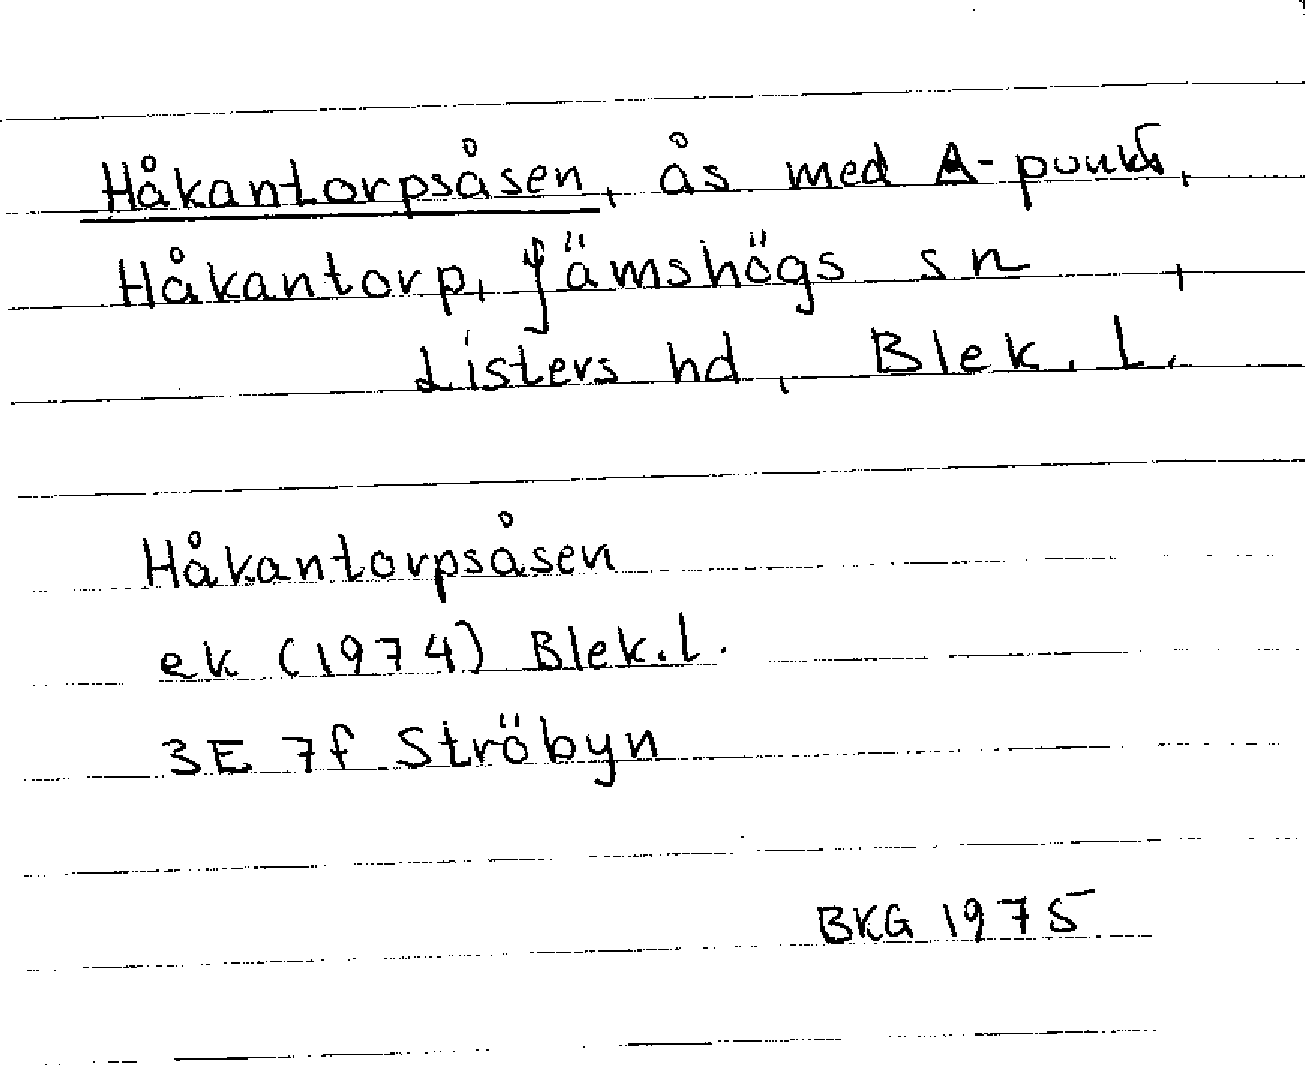 Håkantorpsåsen, ås med A-punkt,
Håkantorp, Jämshögs sn ,
Listers hd, Blek. l.
Håkantorpsåsen
ek (1974) Blek.l.
3E 7f Ströbyn
BKG 1975